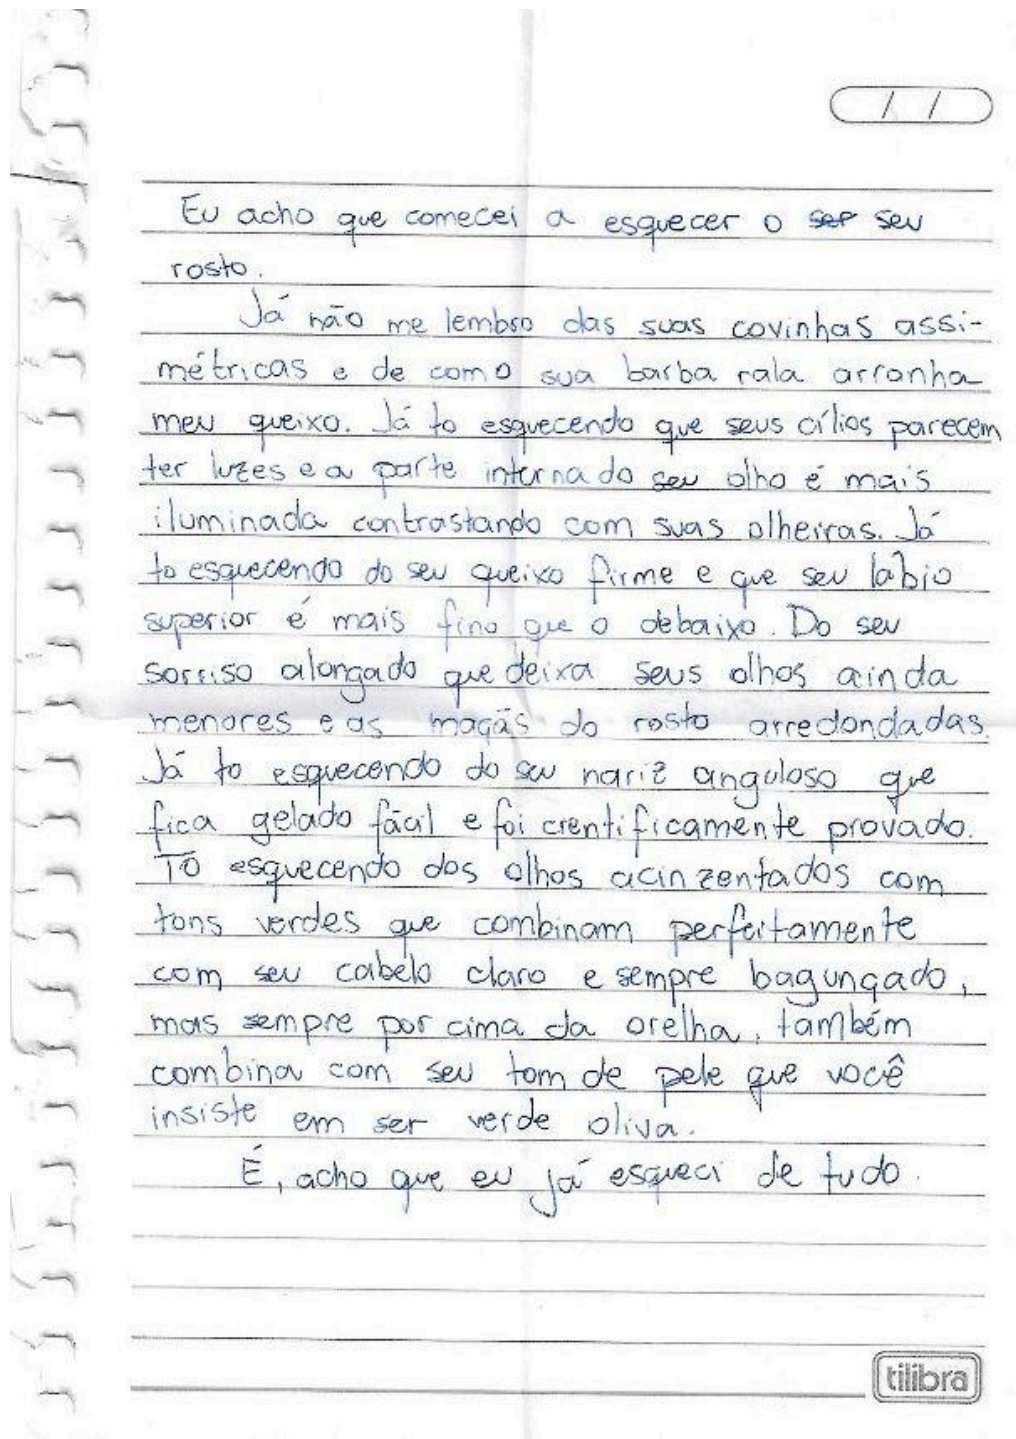 / /
Eu acho que comecei a esquecer o ser seu
rosto.
Já não me lembro das suas covinhas assi-
métricas e de como sua barba rala arranha
meu queixo. Já to esquecendo que seus cílios parecem
ter luzes e a parte interna do seu olho é mais
iluminada contrastando com suas olheiras. Já
to esquecendo do seu queixo firme e que seu lábio
superior é mais fino que o debaixo. Do seu
sorriso alongado que deixa seus olhos ainda
menores e as maçãs do rosto arredondadas.
Já to esquecendo do seu nariz anguloso que
fica gelado fácil e foi cientificamente provado.
TÔ esquecendo dos olhos acinzentados com
tons verdes que combinam perfeitamente
com seu cabelo claro e sempre bagunçado,
mas sempre por cima da orelha, também
combina com seu tom de pele que você
insiste em ser verde oliva.
É, acho que eu já esqueci de tudo.
tilibra